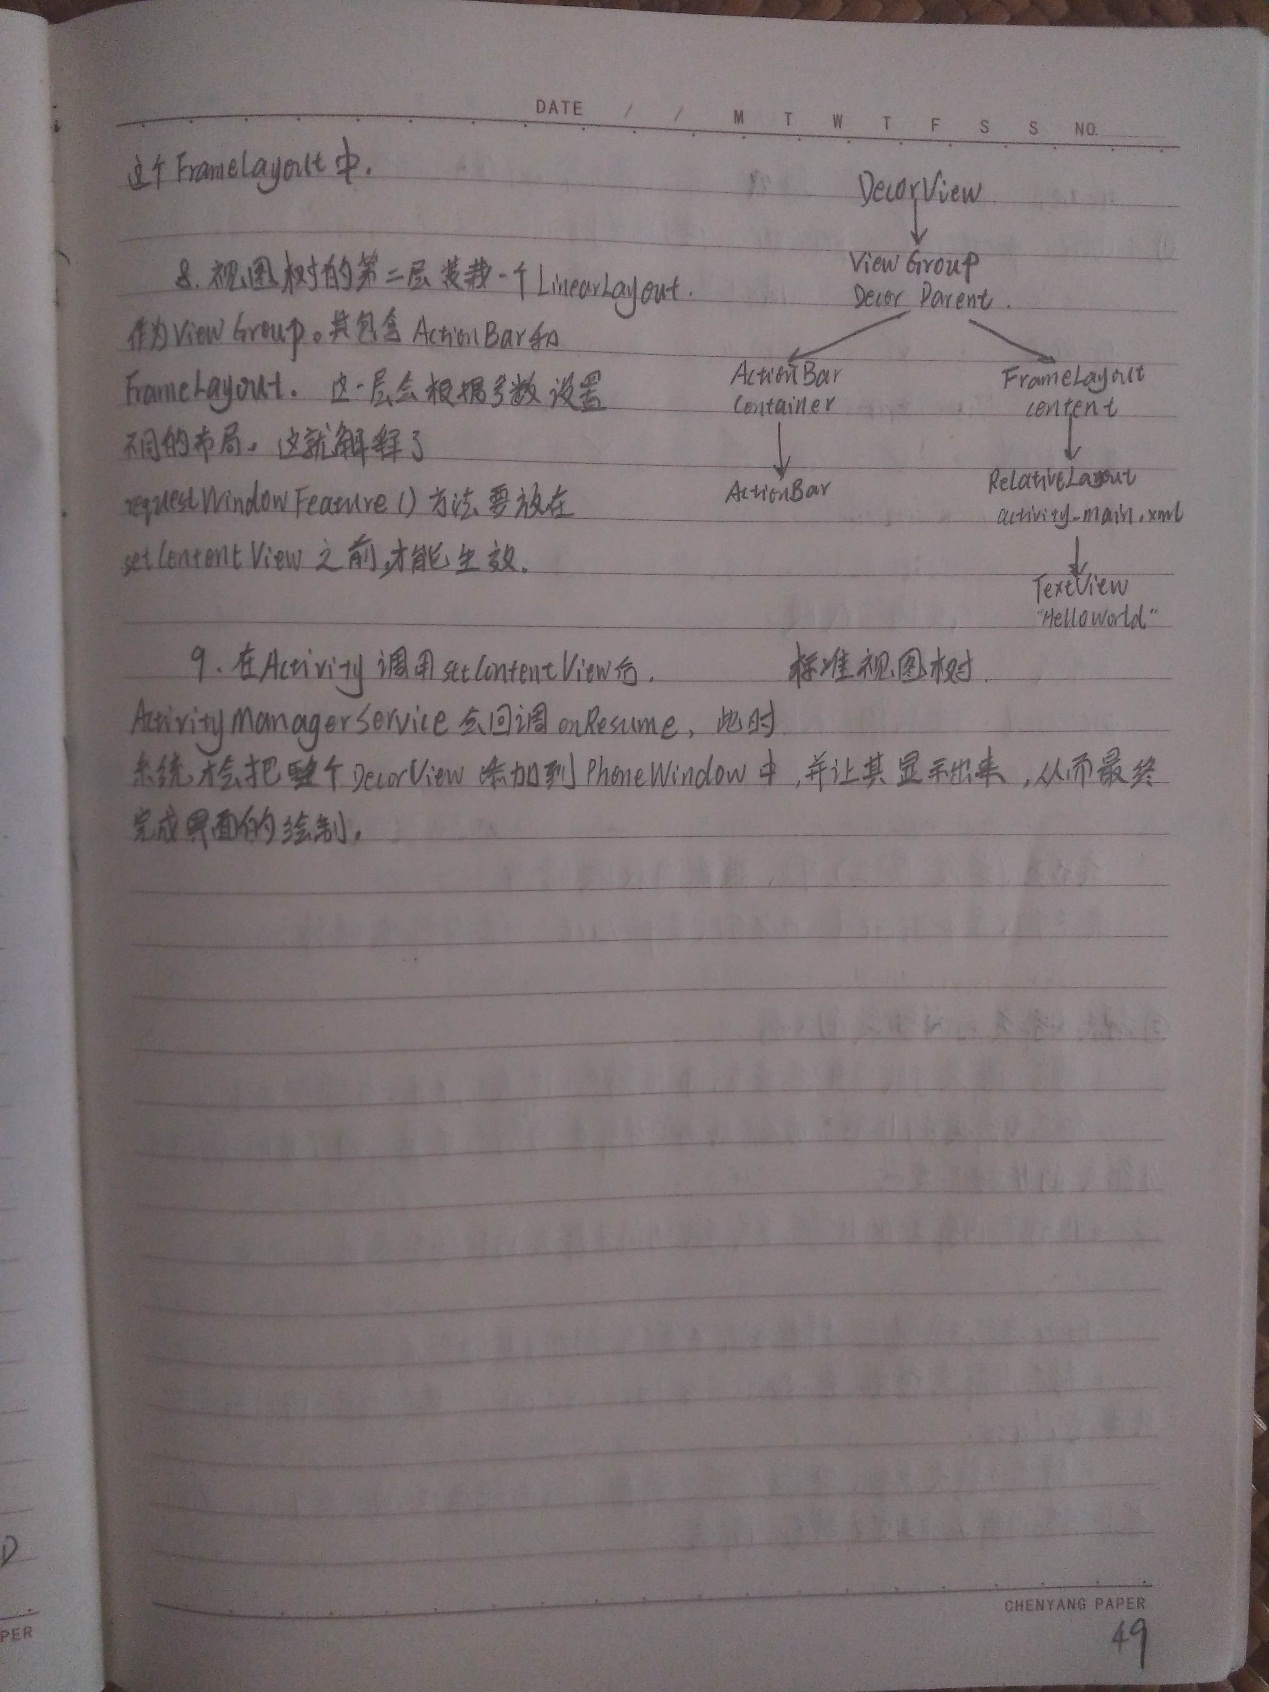 DATE / / M T W T F S S NO.
这个FrameLayout中.
8. 视图树的第二层装载一个LinearLayout.
作为ViewGroup。其包含ActionBar和
FrameLayout. 这一层会根据参数设置
不同的布局。这就解释了
requestWindowFeature()方法要放在
setContentView之前,才能生效.
DecorView
View Group
Decor Parent
ActionBar
Container
FrameLayout
content
ActionBar
RelativeLayout
activity-main.xml
TextView
"HelloWorld"
标准视图树
9. 在Activity调用setContentView后.
ActivityManagerService会回调onResume, 此时
系统才会把整个DecorView添加到PhoneWindow中,并让其显示出来,从而最终
完成界面的绘制.
CHENYANG PAPER
49
D
PER